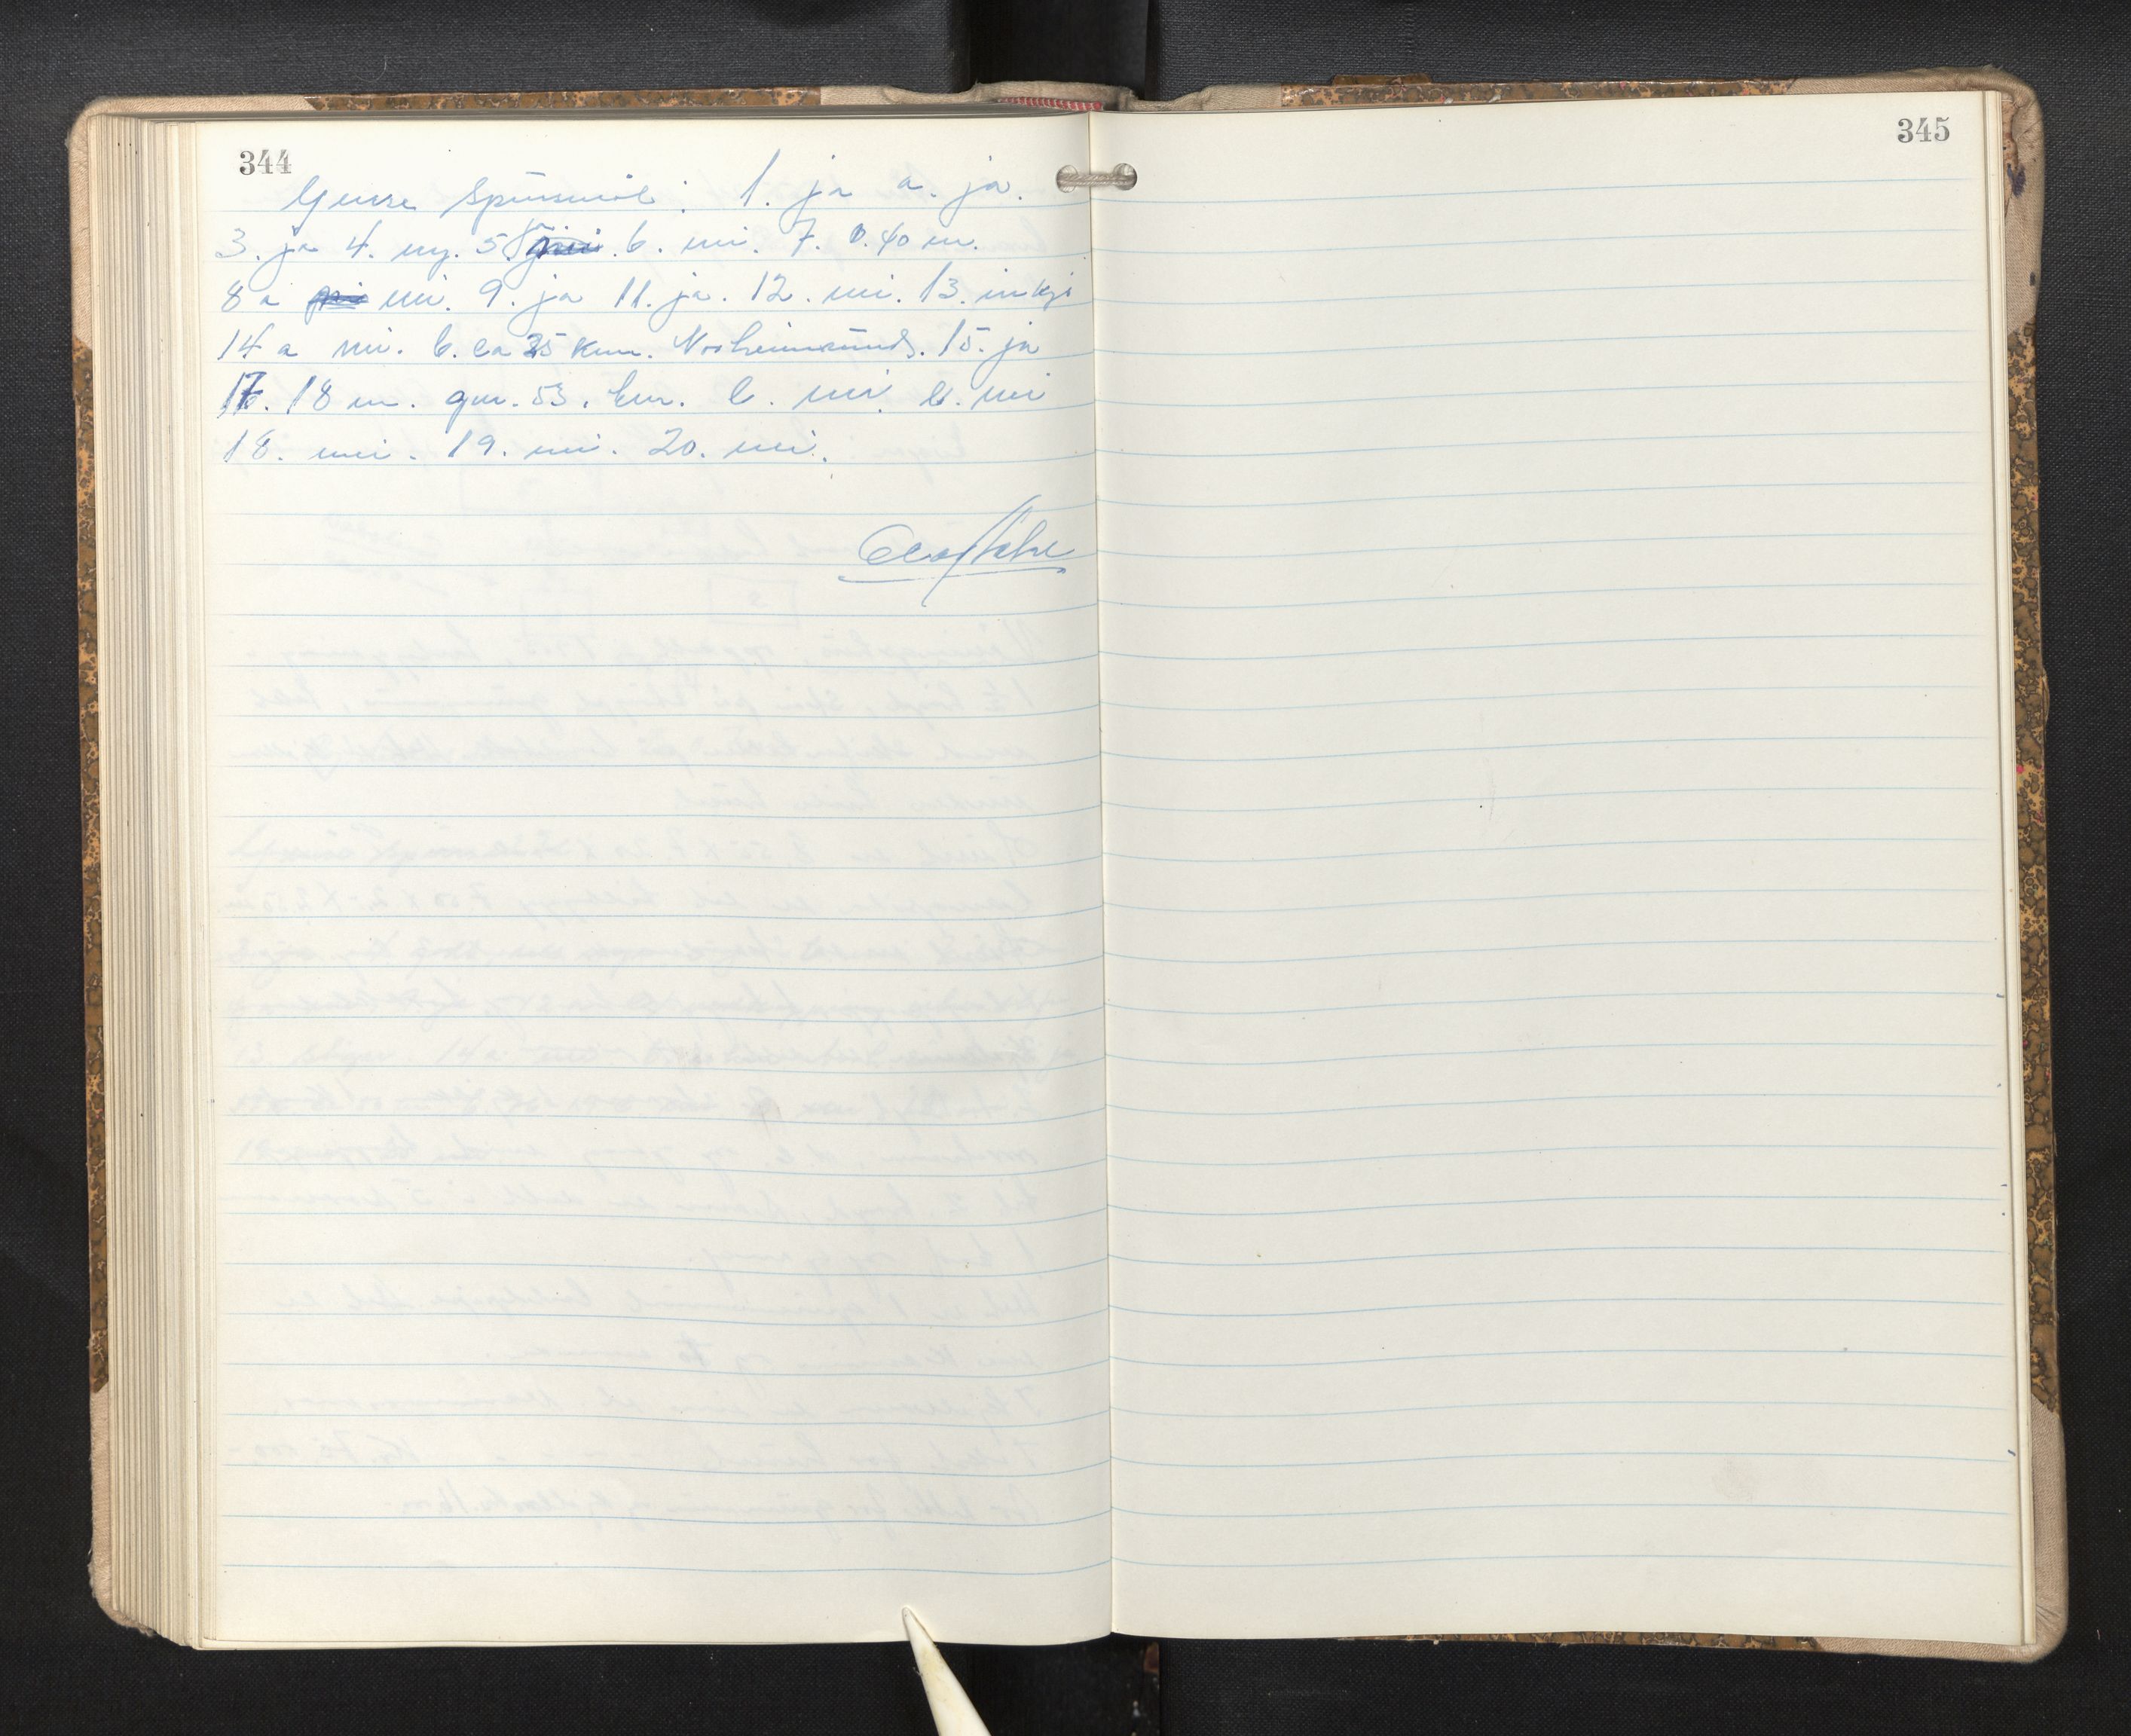 344
Ymse Spursmål: 1. ja a. ja.
3. ja 4. ny. 5. ja. 6. nei. 7. 0.40 m.
8 a nei. 9. ja 11. ja. 12. nei. 13. inkje
14 a nei. b. ca 35 km. Norheimsund. 15. ja
17. 18 m. gnr. 53. bnr. b. nei. c. nei
18. nei. 19. nei. 20. nei.
345